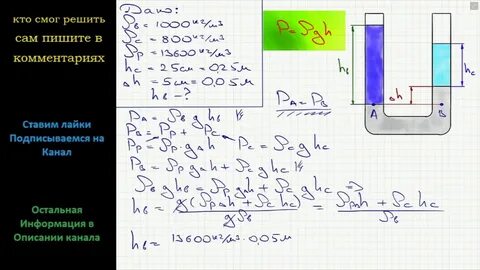 кто смог решить
сам пишите в
комментариях
Ставим лайки
Подписываемся на
Канал
Остальная
Информация в
Описании канала
Дано:
ρв = 1000 кг/м3
ρс = 800 кг/м3
ρр = 13600 кг/м3
hс = 25см = 0,25 м
Δh = 5см = 0,05 м
hв - ?
P = ρgh
PA = PB
PA = ρв g hв
PB = Pр + Pс
Pр = ρр·gΔh Pс = ρс g hс
PB = ρр gΔh + ρс g hс
ρв g hв = ρр gΔh + ρс g hс ⇒
hв = g(ρрΔh + ρс hс) / gρв = ρрΔh + ρс hс / ρв
hв = 13600 кг/м3 · 0,05 м
hв
Δh
hс
A
B